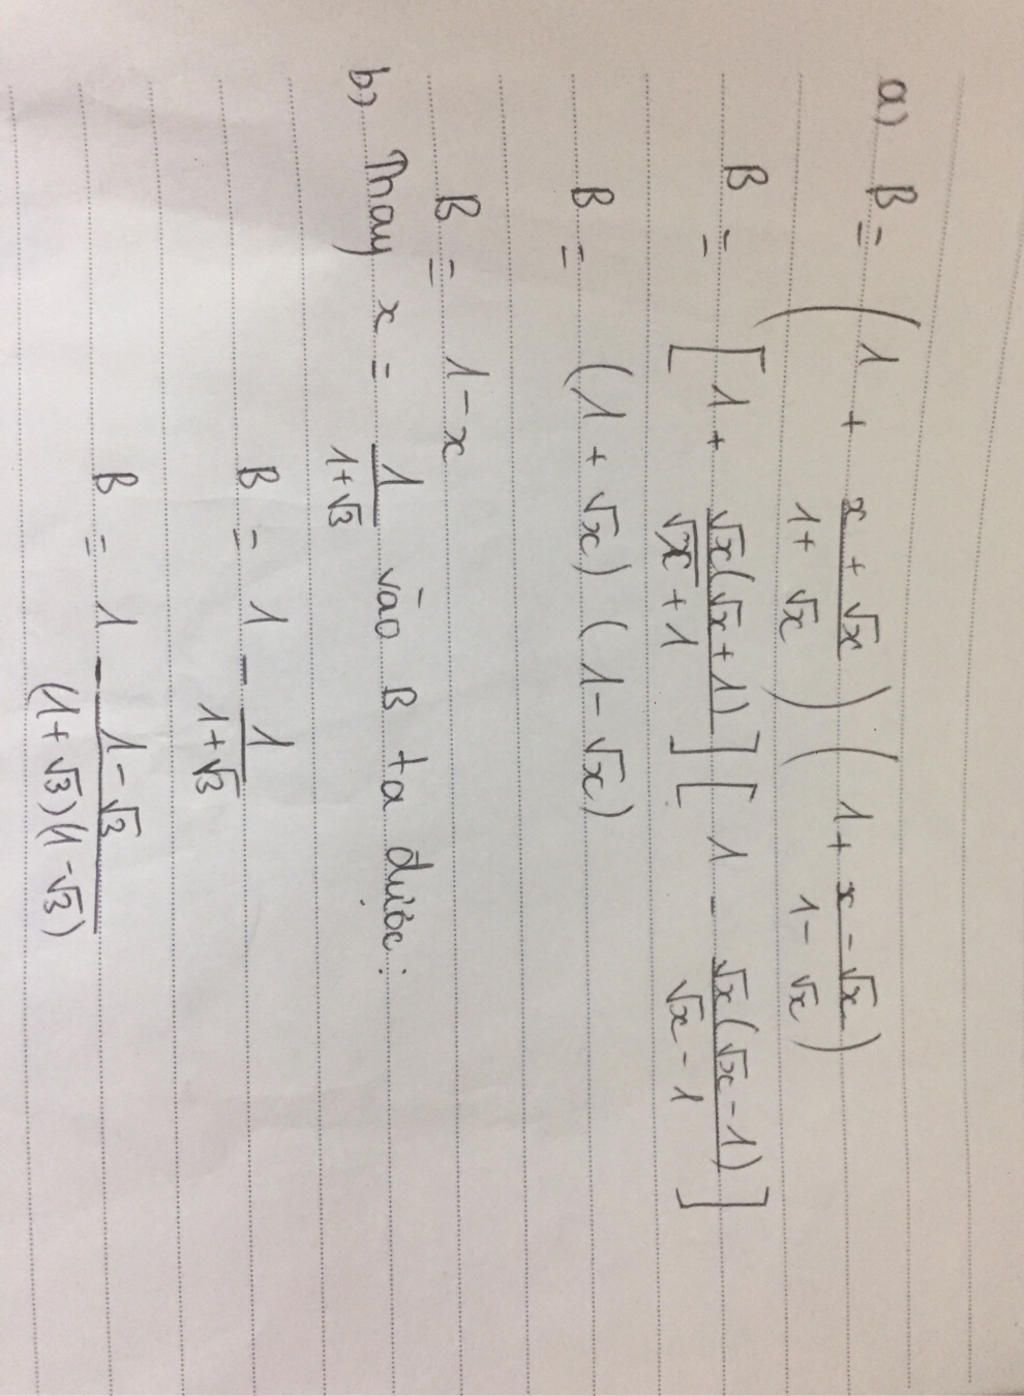 a) B = (1 + (x + √x)/(1 + √x)) (1 + (x - √x)/(1 - √x))
B = [1 + √x(√x + 1)/(√x + 1)] [1 - √x(√x - 1)/(√x - 1)]
B = (1 + √x) (1 - √x)
B = 1 - x
b) Thay x = 1/(1+√3) vào B ta được:
B = 1 - 1/(1+√3)
B = 1 - (1 - √3)/((1 + √3)(1 - √3))